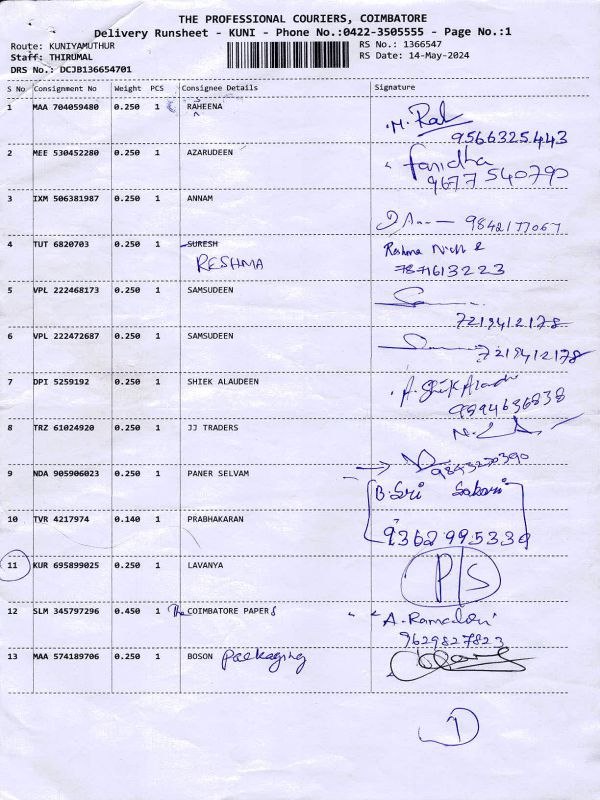 THE PROFESSIONAL COURIERS, COIMBATORE
Delivery Runsheet - KUNI - Phone No.:0422-3505555 - Page No.:1
Route: KUNIYAMUTHUR RS No.: 1366547
Staff: THIRUMAL RS Date: 14-May-2024
DRS No.: DCJB136654701
S No Consignment No Weight PCS Consignee Details Signature
1 MAA 704059480 0.250 1 RAHEENA
9566325443
2 MEE 530452280 0.250 1 AZARUDEEN faridha
9677540790
3 IXM 506381987 0.250 1 ANNAM
9842177067
4 TUT 6820703 0.250 1 SURESH Reshma
RESHMA 7871613223
5 VPL 222468173 0.250 1 SAMSUDEEN
7219412178
6 VPL 222472687 0.250 1 SAMSUDEEN
7219412178
7 DPI 5259192 0.250 1 SHIEK ALAUDEEN
9894636838
8 TRZ 61024920 0.250 1 JJ TRADERS
9843270390
9 NDA 905906023 0.250 1 PANER SELVAM B. Sri
10 TVR 4217974 0.140 1 PRABHAKARAN 9362995339
11 KUR 695899025 0.250 1 LAVANYA P/S
12 SLM 345797296 0.450 1 The COIMBATORE PAPERS A. Ramadevi
9629827823
13 MAA 574189706 0.250 1 BOSON Packaging
1